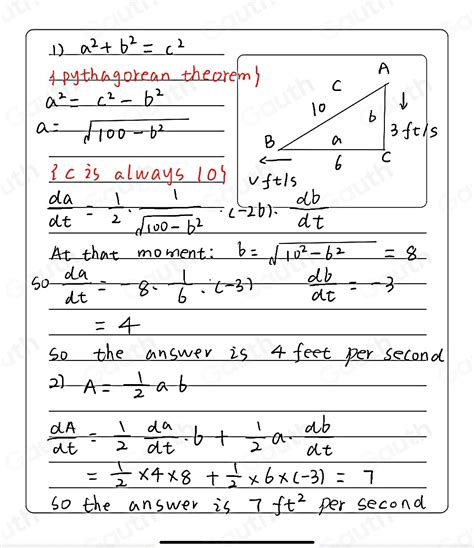 1) a² + b² = c²
{pythagorean theorem}
a² = c² - b²
a = √100 - b²
{C is always 10}
A
C
10
b
3 ft/s
B
a
C
6
v ft/s
da/dt = 1/2 · 1/√100 - b² · (-2b) · db/dt
At that moment: b = √10² - 6² = 8
so da/dt = -8 · 1/6 · (-3) db/dt = -3
= 4
so the answer is 4 feet per second
2) A = 1/2 a b
dA/dt = 1/2 da/dt · b + 1/2 a · db/dt
= 1/2 × 4 × 8 + 1/2 × 6 × (-3) = 7
so the answer is 7 ft² per second